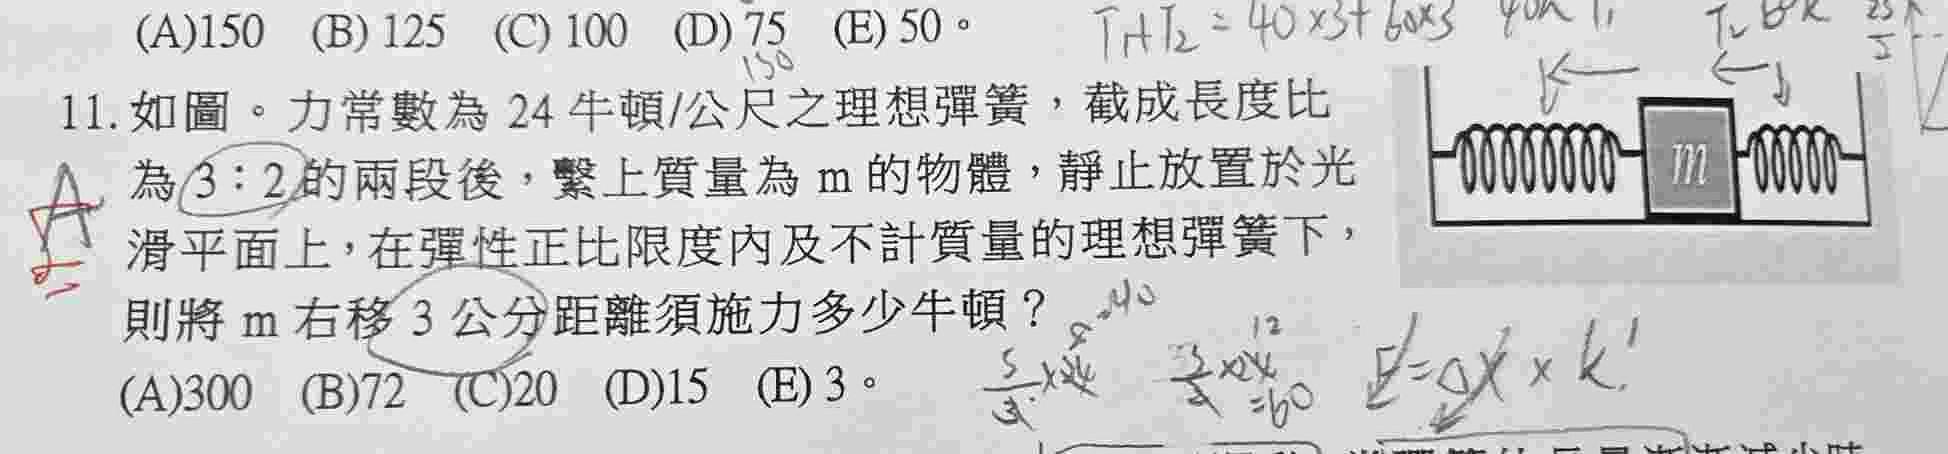 (A)150 (B) 125 (C) 100 (D) 75 (E) 50。
T₁+T₂ = 40×3+60×3
150
11. 如圖。力常數為 24 牛頓/公尺之理想彈簧，截成長度比
為 3：2 的兩段後，繫上質量為 m 的物體，靜止放置於光
A
m
滑平面上，在彈性正比限度內及不計質量的理想彈簧下，
則將 m 右移 3 公分距離須施力多少牛頓？
(A)300 (B)72 (C)20 (D)15 (E) 3。
5/3 ×24 = 40
5/2 ×24 12 =60
F=Δx × k'